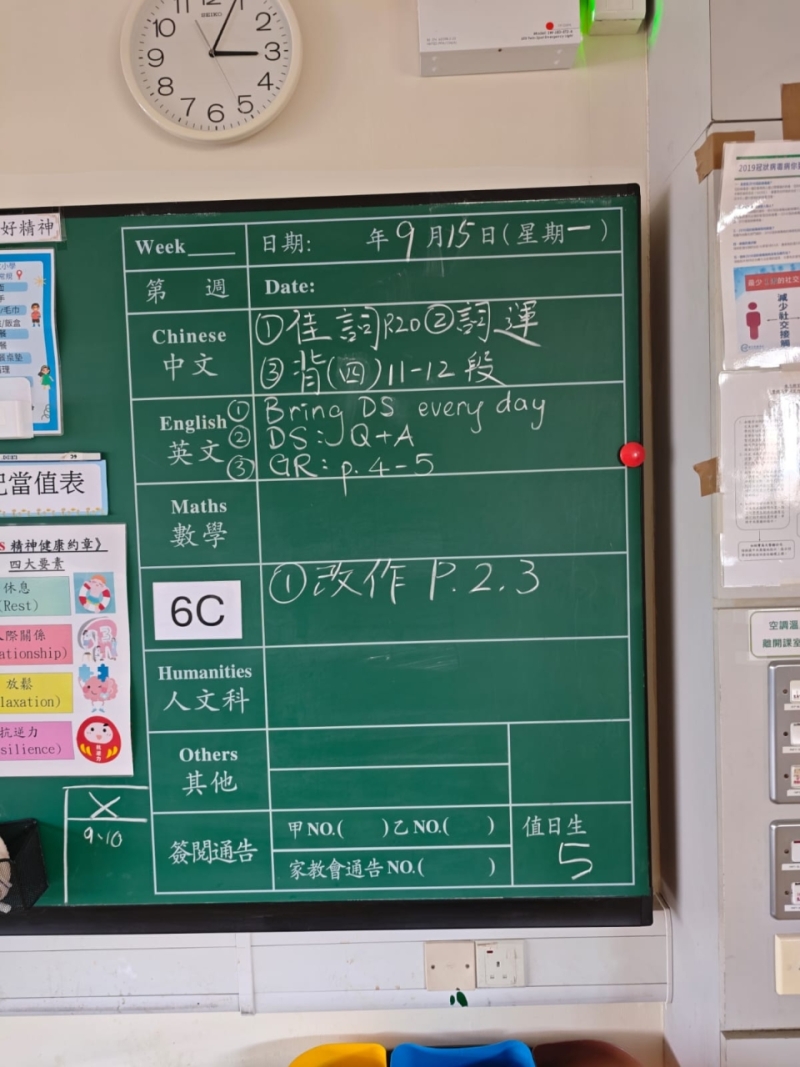 12
11
10
9
8
7
6
5
4
3
2
SEIKO
好精神
Week____ 日期: 年9月15日(星期一)
第 週 Date:
Chinese 中文
①佳詞P.20②詞運
③背(四)11-12段
English 英文
① Bring DS every day
② DS: Q+A
③ GR: p.4-5
Maths 數學
6C
①改作 P.2.3
Humanities 人文科
Others 其他
簽閱通告
甲NO.( )乙NO.( )
家教會通告NO.( )
值日生
5
當值表
精神健康約章》
四大要素
休息
(Rest)
人際關係
放鬆
抗逆力
X
9、10
減少社交接觸
空調溫
離開課室